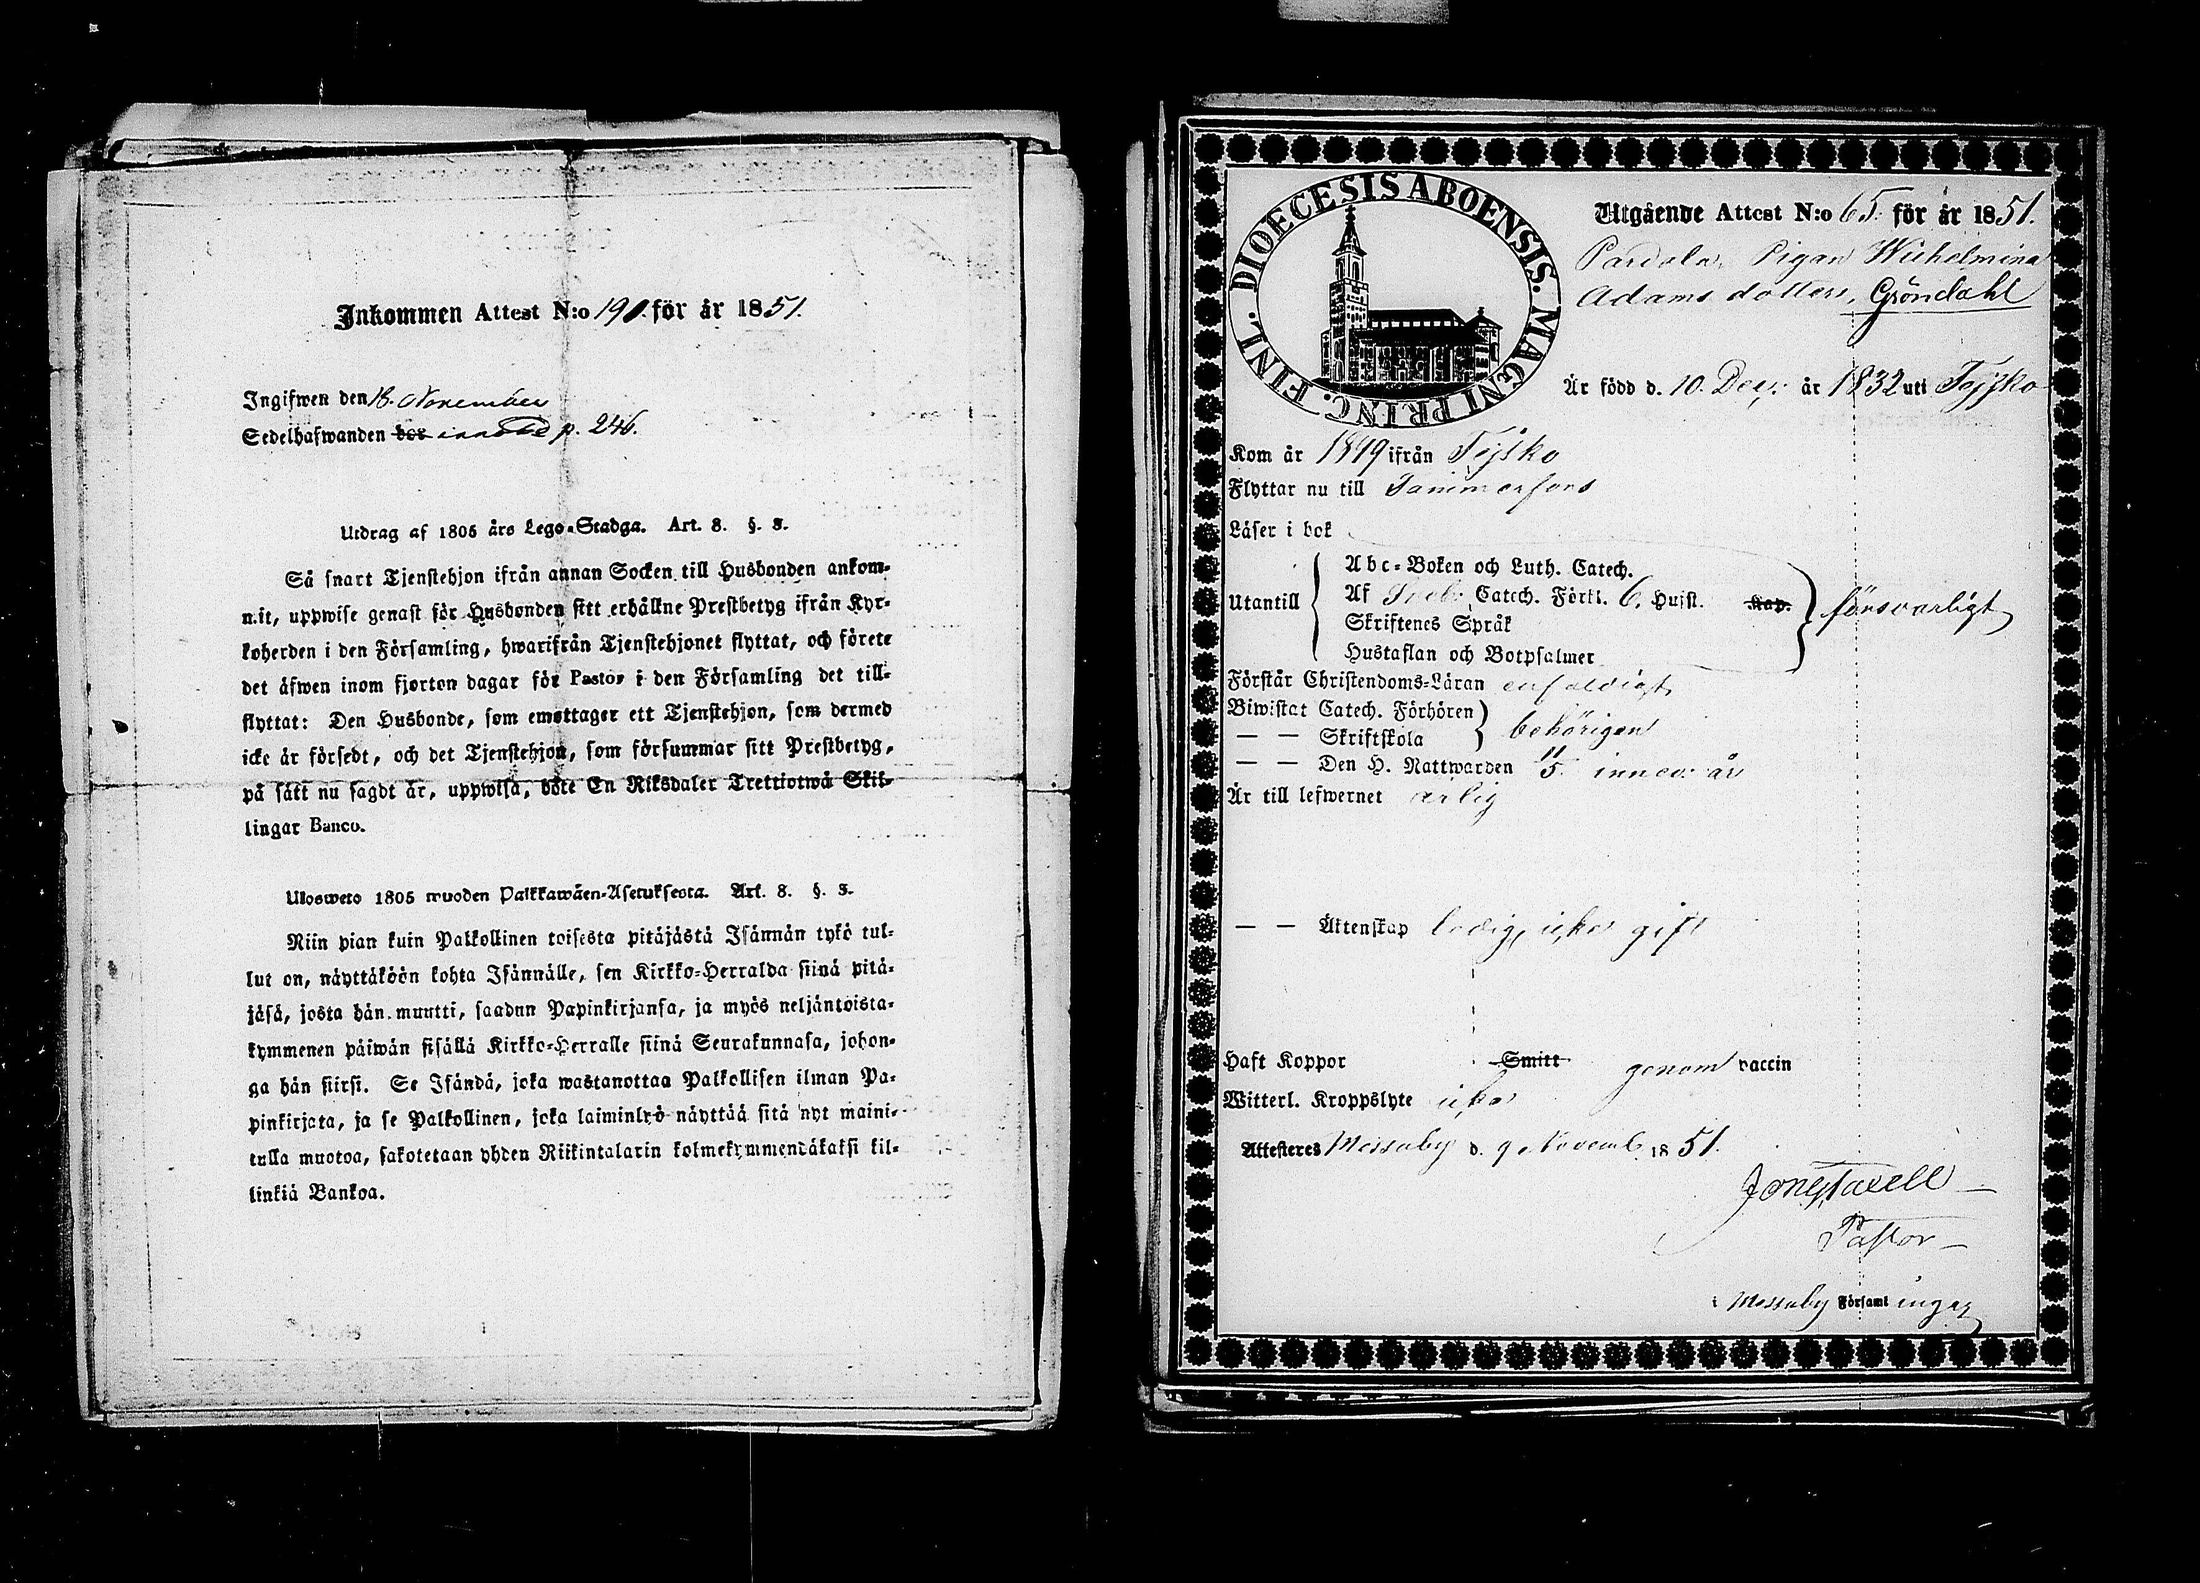 Inkommen Attest N:o 190 för år 1851.
Ingifwen den 18. November
Sedelhafwanden hos p. 246.
Utdrag af 1805 års Lego-Stadga. Art. 8. §. 3.
Så snart Tjenstehjon ifrån annan Socken till Husbonden ankom-
mit, uppwise genast för Husbonden sitt erhållne Prestbetyg ifrån Kyr-
koherden i den Församling, hwarifrån Tjenstehjonet flyttat, och förete
det äfwen inom fjorton dagar för Pastor i den Församling det till-
flyttat: Den Husbonde, som emottager ett Tjenstehjon, som dermed
icke är försedt, och det Tjenstehjon, som försummar sitt Prestbetyg,
på sätt nu sagdt är, uppwisa, böte En Riksdaler Trettiotwå Skil-
lingar Banco.
Ulosweto 1805 wuoden Palkkawäen-Asetuksesta. Art. 8. §. 3.
Niin pian kuin Palkollinen toisesta pitäjästä Isännän tykö tul-
lut on, näyttäköön kohta Isännälle, sen Kirkko-Herralda siinä pitä-
jäsä, josta hän muutti, saadun Papinkirjansa, ja myös neljäntoista-
kymmenen päiwän sisällä Kirkko-Herralle siinä Seurakunnasa, johon-
ga hän siirsi. Se Isändä, joka wastanottaa Palkollisen ilman Pa-
pinkirjata, ja se Palkollinen, joka laiminlyö näyttää sitä nyt maini-
tulla muotoa, sakotetaan yhden Riikintalarin kolmekymmendäkaksi kil-
linkiä Bankoa.
DIOECESIS ABOENSIS. MAGNI PRINC. FINL.
Utgående Attest N:o 65. för år 1851.
Pardala, Pigan Wilhelmina
Adams dotter, Gröndahl
Är född d. 10. Dec. år 1832 uti Tejsko
Kom år 1849 ifrån Tejsko
Flyttar nu till Tammerfors
Läser i bok
Utantill
Abc-Boken och Luth. Catech.
Af Catech. Förkl. 6. Hufst. Kap.
Skriftenes Språk
Hustaflan och Botpsalmer
försvarligt
Förstår Christendoms-Läran enfaldigt
Biwistat Catech. Förhören
— — Skriftskola
behörigen
— — Den H. Nattwarden innev. år
Är till lefwernet ärlig
— — Äktenskap ledig, icke gift
Haft Koppor Smitt genom vaccin
Witterl. Kroppslyte icke
Attesteras Messuby d. 9 Novemb. 1851.
Pastor
i Messuby Församlingar